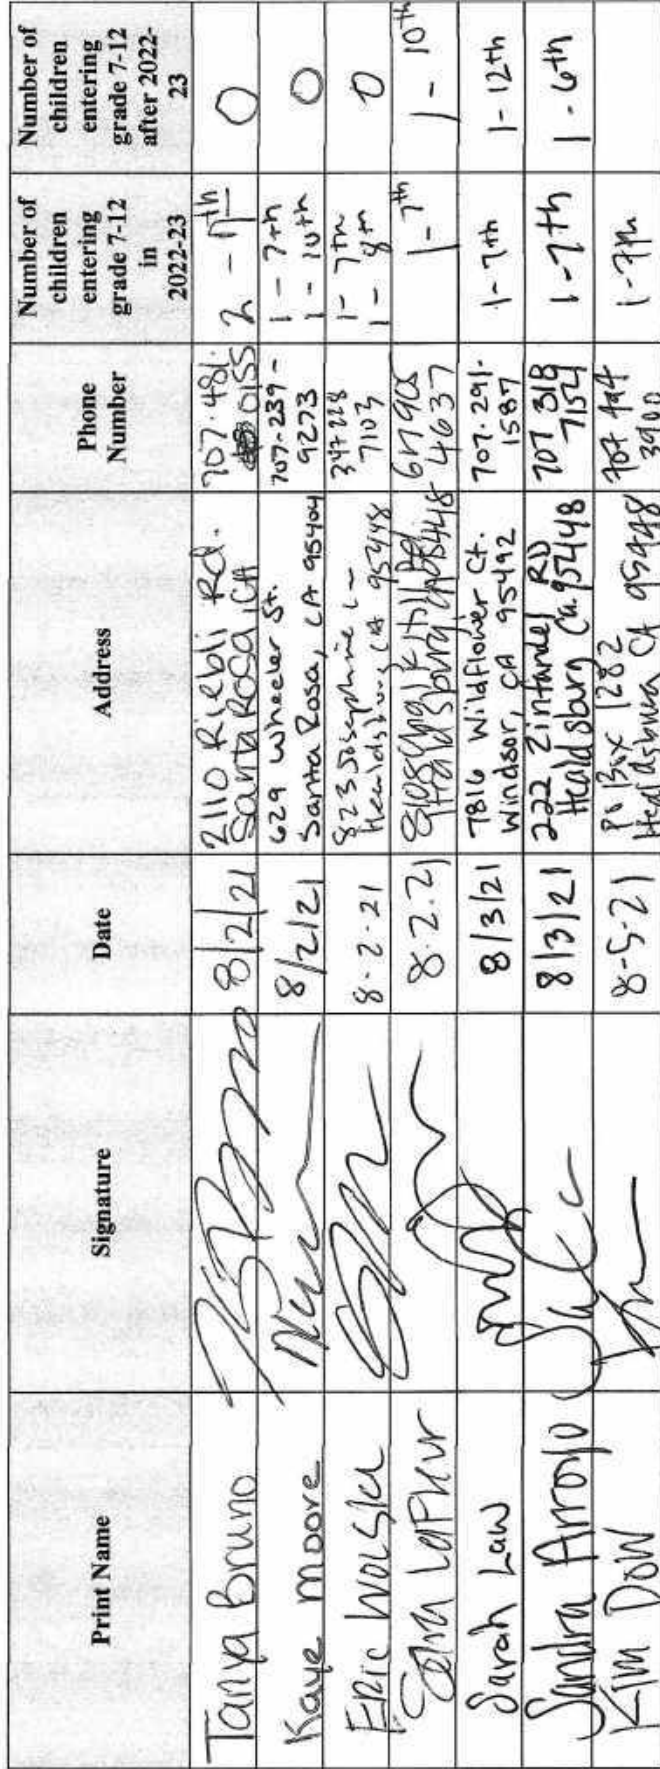 Print Name
Signature
Date
Address
Phone Number
Number of children entering grade 7-12 in 2022-23
Number of children entering grade 7-12 after 2022-23
Tanya Bruno
8/2/21
2110 Riebli Rd.
Santa Rosa, CA
707.481.
0155
2 - 7th
0
Kaye Moore
8/2/21
629 Wheeler St.
Santa Rosa, CA 95404
707-239-
9273
1 - 7th
1 - 10th
0
Eric
8-2-21
823 Josephine Ln
Healdsburg CA 95448
347 228
7103
1 - 7th
1 - 8th
0
8.2.21
Healdsburg CA 95448
617 905
4637
1 - 7th
1 - 10th
Sarah Law
8/3/21
7816 Wildflower Ct.
Windsor, CA 95492
707.291.
1587
1-7th
1-12th
Sandra Arroyo
8/3/21
222 Zinfandel RD
Healdsburg Ca. 95448
707 318
7154
1-7th
1-6th
Kim Dow
8-5-21
Po Box 1282
Healdsburg CA 95448
707 494
3900
1-7th